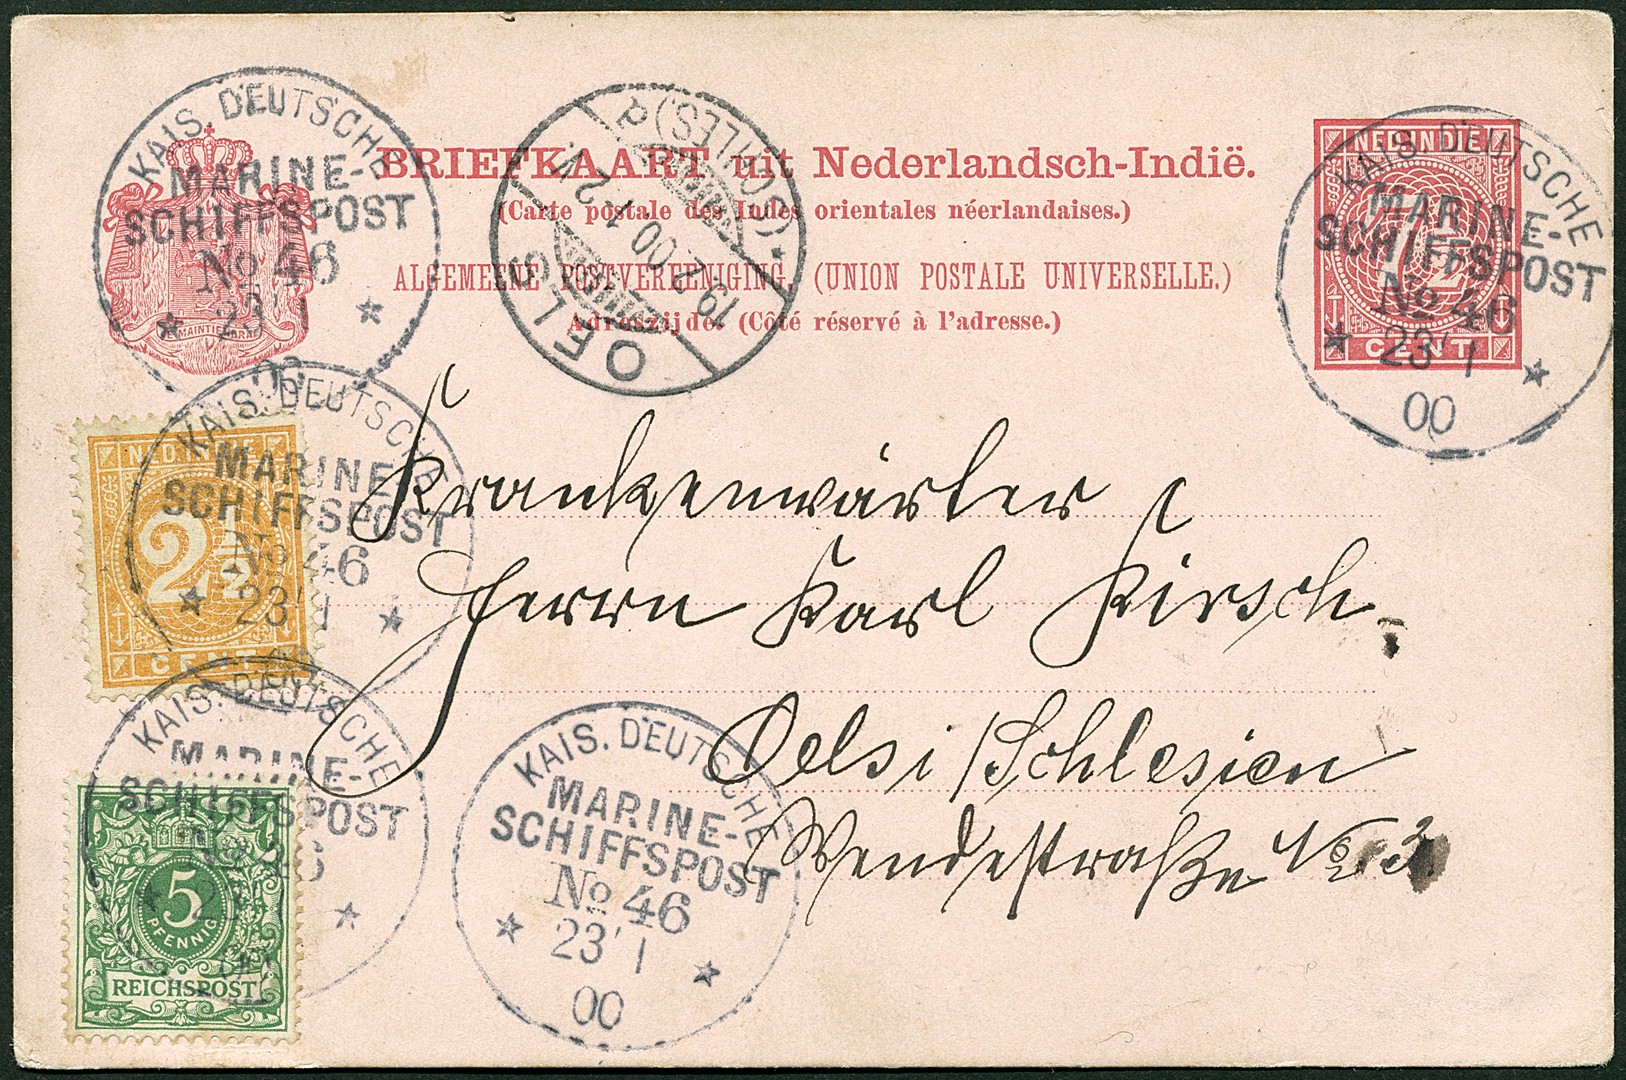 BRIEFKAART uit Nederlandsch-Indië.
(Carte postale des Indes orientales néerlandaises.)
ALGEMEENE POSTVEREENIGING. (UNION POSTALE UNIVERSELLE.)
Adreszijde. (Côté réservé à l'adresse.)
JE MAINTIENDRAI
KAIS. DEUTSCHE
MARINE-
SCHIFFSPOST
No 46
23/1
00
OELS
(SCHLES.) d
19.2.00.1-2N.
NED. INDIE
CENT
KAIS. DEUTSCHE
MARINE-
SCHIFFSPOST
No 46
23/1
00
NED. INDIE
2½
CENT
KAIS. DEUTSCHE
MARINE-
SCHIFFSPOST
No 46
23/1
Krankenwärter
Herrn Karl Kirsch.
Oels i/Schlesien
Wendestraße No 3.
KAIS. DEUTSCHE
MARINE-
SCHIFFSPOST
No 46
5
PFENNIG
REICHSPOST
KAIS. DEUTSCHE
MARINE-
SCHIFFSPOST
No 46
23/1
00